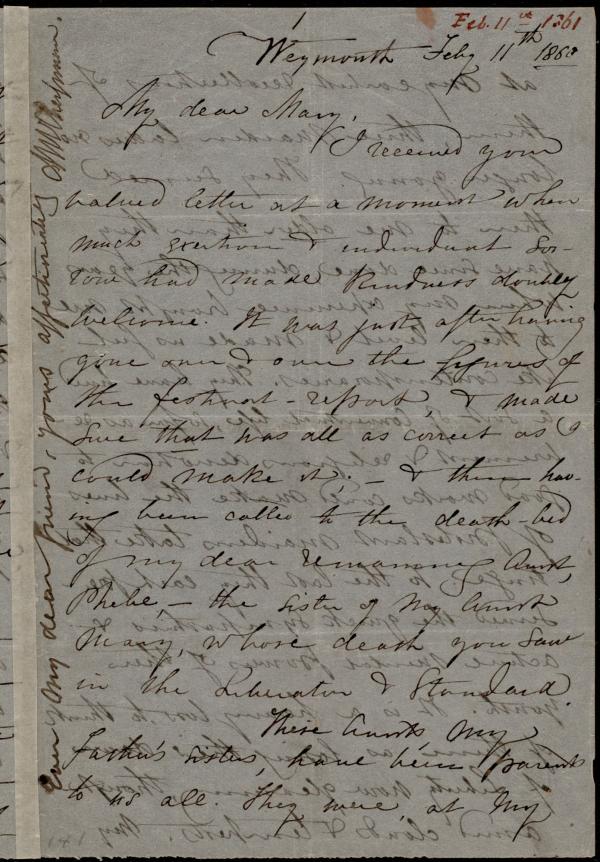 1
Feb. 11th 1861
Weymouth Feby 11th 1860
My dear Mary,
I received your
valued letter at a moment when
much exertion & individual sor-
row had made kindness doubly
welcome. It was just after having
gone over & over the figures of
the festival-report, & made
sure that was all as correct as I
could make it; - & then hav-
ing been called to the death-bed
of my dear remaining Aunt,
Phebe, - the sister of my Aunt
Mary, whose death you saw
in the Liberator & Standard.
These Aunts, my
Father's sisters, have been parents
to us all. They were, at my
Ever my dear friend, yours affectionately